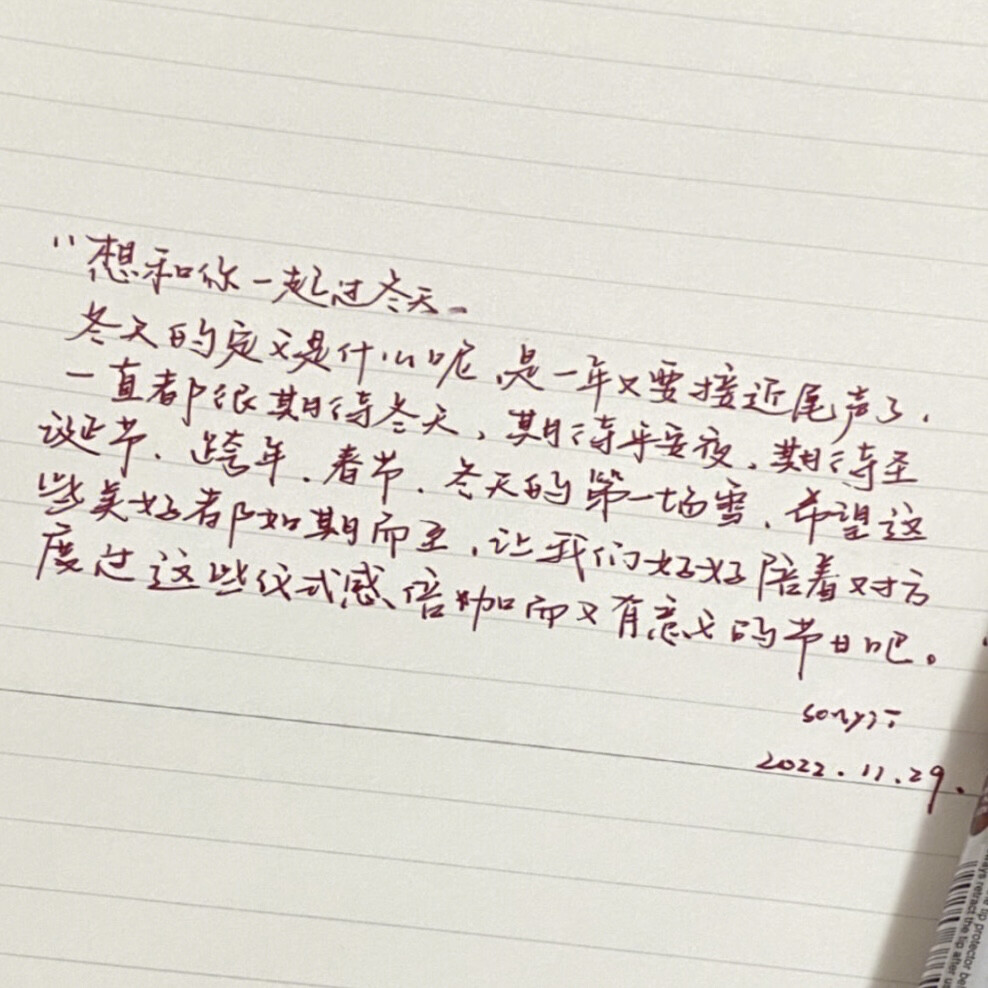 "想和你一起过冬天。
冬天的定义是什么呢,是一年又要接近尾声了,
一直都很期待冬天,期待平安夜,期待圣
诞节、跨年、春节、冬天的第一场雪,希望这
些美好都如期而至,让我们好好陪着对方
度过这些仪式感倍加而又有意义的节日吧。
2022.11.29.
tip protector be
always retract the tip after u